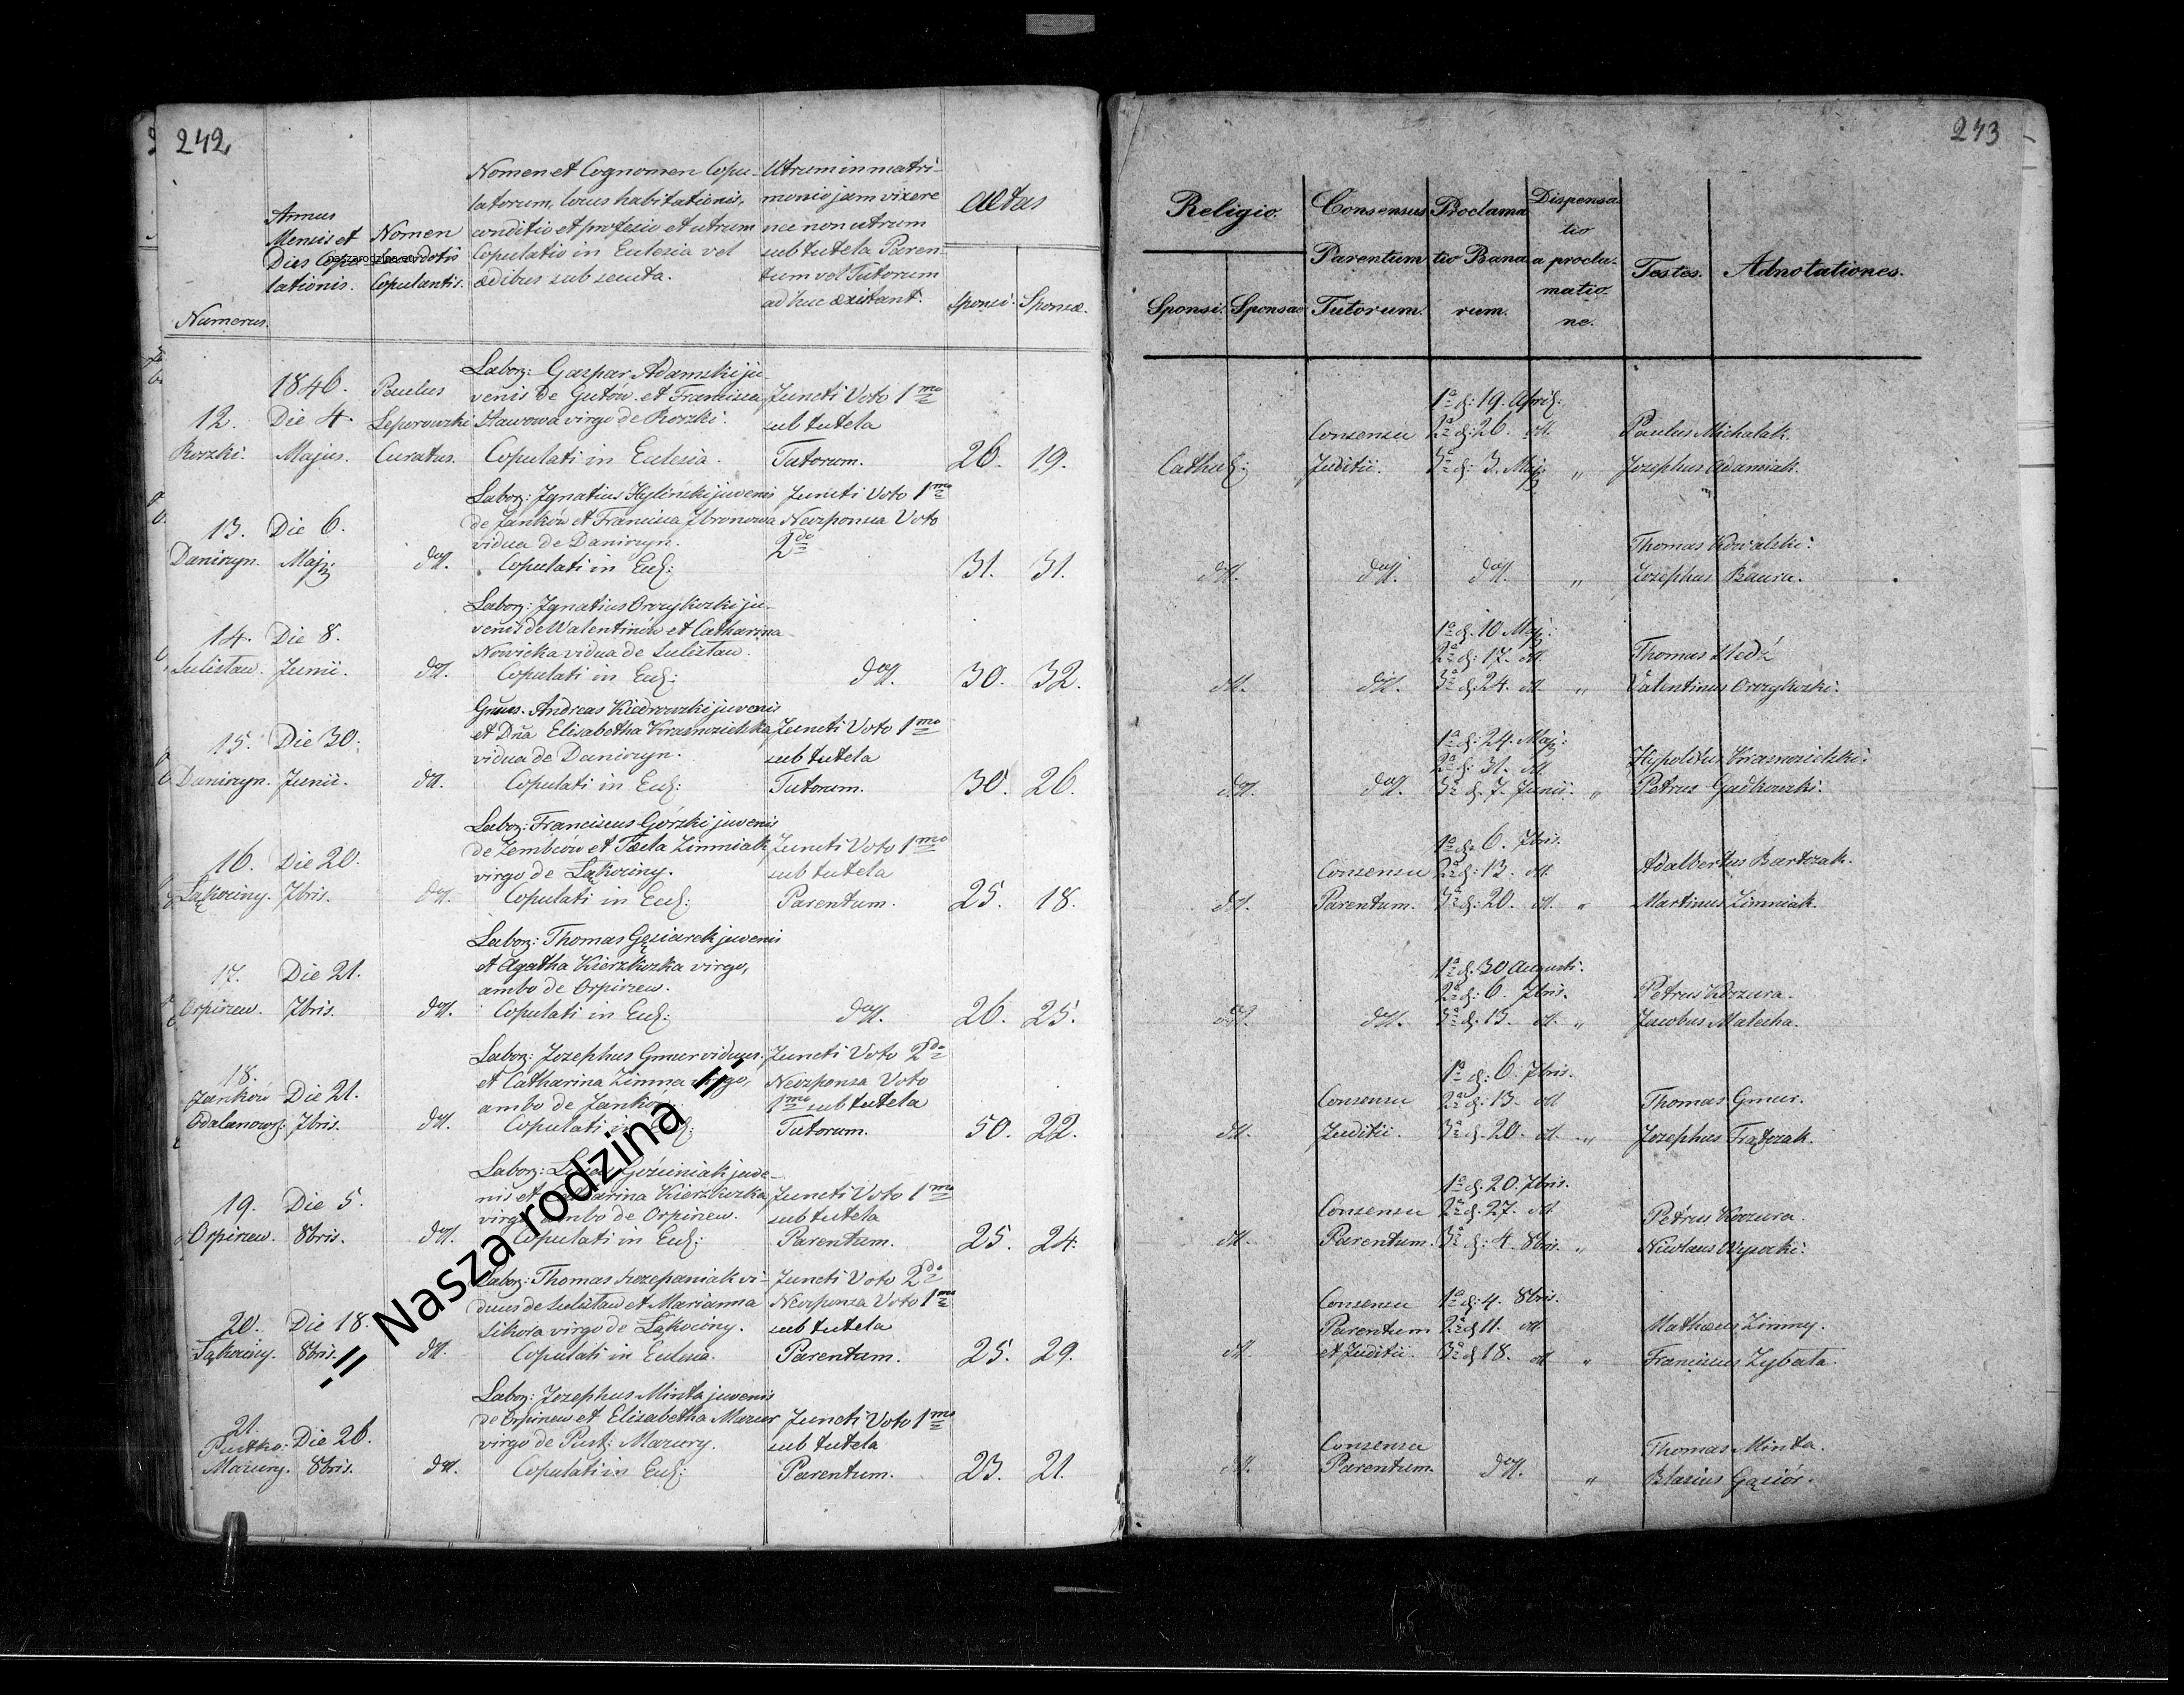 242.
Numerus.
Annus
Mensis et
Dies Copu-
lationis.
Nomen
Sacerdotis
Copulantis.
naszarodzina.eu
Nomen et Cognomen Copu-
latorum, locus habitationis,
conditio et profesio et utrum
Copulatio in Eclesia vel
ædibus sub secuta.
Utrum in matri-
monio jam vixere
nec non utrum
sub tutela Paren-
tum vel Tutorum
ad huc existant.
Aetas
Sponsi. Sponsæ.
12.
Roszki.
1846.
Die 4.
Majus.
Paulus
Curatus.
Labor: Gaspar Adamski ju-
venis de Gutów et Francisca
virgo de Roszki.
Copulati in Eclesia.
Juncti Voto 1mo
sub tutela
Tutorum.
26. 19.
13.
Daniszyn.
Die 6.
Maj:
dtt.
Labor: Ignatius Hyliński juvenis
de Janków et Francisca Zbronowa
vidua de Daniszyn.
Copulati in Ecl:
Juncti Voto 1mo
Neosponsa Voto
2do
31. 31.
14.
Sulistaw.
Die 8.
Junii.
dtt.
Labor: Ignatius Orczykoski ju-
venis de Walentinów et Catharina
Nowicka vidua de Sulistaw.
Copulati in Ecl:
dtt.
30. 32.
15.
Daniszyn.
Die 30.
Junii.
dtt.
Andreas Kiedrowski juvenis
et Dña Elisabetha Krasnosielska
vidua de Daniszyn.
Copulati in Ecl:
Juncti Voto 1mo
sub tutela
Tutorum.
30. 26.
16.
Łąkociny.
Die 20.
7bris.
dtt.
Labor: Franciscus Górski juvenis
de Zembców et Tecla Zimniak
virgo de Łąkociny.
Copulati in Ecl:
Juncti Voto 1mo
sub tutela
Parentum.
25. 18.
17.
Orpiszew.
Die 21.
7bris.
dtt.
Labor: Thomas Gęsiarek juvenis
et Agatha Kierzkoska virgo,
ambo de Orpiszew.
Copulati in Ecl:
dtt.
26. 25.
18.
Janków
Odalanows:
Die 21.
7bris.
dtt.
Labor: Josephus Gmur viduus
et Catharina Zimna virgo,
ambo de Janków.
Copulati in Ecl:
Juncti Voto 2do
Neosponsa Voto
1mo sub tutela
Tutorum.
50. 22.
19.
Orpiszew.
Die 5.
8bris.
dtt.
Labor: juve-
nis et Catharina Kierzkoska
virgo ambo de Orpiszew.
Copulati in Ecl:
Juncti Voto 1mo
sub tutela
Parentum.
25. 24.
20.
Łąkociny.
Die 18.
8bris.
dtt.
Labor: Thomas Szczepaniak vi-
duus de Sulistaw et Marianna
Sikora virgo de Łąkociny.
Copulati in Eclesia.
Juncti Voto 2do
Neosponsa Voto 1mo
sub tutela
Parentum.
25. 29.
21.
Pustko:
Mazury.
Die 26.
8bris.
dtt.
Labor: Josephus Minta juvenis
de Orpiszew et Elisabetha Mazur
virgo de Pust: Mazury.
Copulati in Ecl:
Juncti Voto 1mo
sub tutela
Parentum.
23. 21.
-=| Nasza rodzina |=-
243
Religio.
Sponsi. Sponsae
Consensus
Parentum
Tutorum.
Proclama
tio Bano
rum.
Dispensa
tio
a procla-
matio-
ne.
Testes.
Adnotationes.
Cathol:
Consensu
Juditii.
1a d: 19. April:
2a d: 26. dtt.
3a d: 3. Maj: "
Paulus Michalak.
Josephus Adamiak.
dtt. dtt. dtt. "
Thomas Kowalski.
Josephus Baura.
dtt. dtt.
1a d. 10 Maj:
2a d: 17. dtt.
3a d. 24. dtt. "
Thomas
Valentinus Orczykoski.
dtt. dtt.
1a d: 24. Maj:
2a d: 31. dtt.
3a d. 7. Junii. "
Hypolitus Krasnosielski.
Petrus Gudkowski.
dtt.
Consensu
Parentum.
1a d: 6. 7bris.
2a d: 13. dtt.
3a d: 20. dtt. "
Adalbertus Bartczak.
Martinus Zimniak.
dtt. dtt.
1a d. 30 Augusti.
2a d: 6. 7bris.
3a d. 13. dtt. "
Petrus Koczura.
Jacobus Malecha.
dtt.
Consensu
Juditii.
1a d: 6. 7bris.
2a d. 13. dtt.
3a d. 20. dtt. "
Thomas Gmur.
Josephus Frątczak.
dtt.
Consensu
Parentum.
1a d. 20. 7bris.
2a d. 27. dtt.
3a d: 4. 8bris. "
Petrus Koczura.
Nicolaus Wysocki.
dtt.
Consensu
Parentum
et Juditii.
1a d: 4. 8bris.
2a d 11. dtt.
3a d 18. dtt "
Mathaeus Zimny.
Franciscus Zybata.
dtt.
Consensu
Parentum.
dtt. "
Thomas Minta.
Blasius Gąsiór.